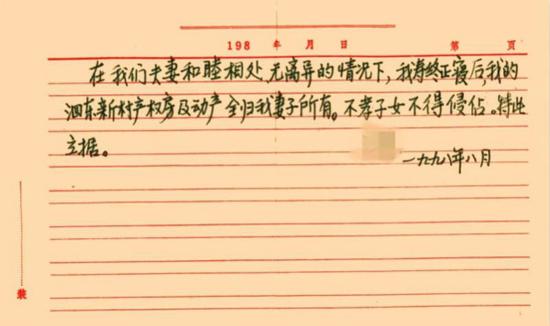 198 年 月 日 第 页
在我们夫妻和睦相处,无离异的情况下,我寿终正寝后,我的
泗东新村产权房及动产全归我妻子所有。不孝子女不得侵佔。特此
立据。
一九九八年八月
装